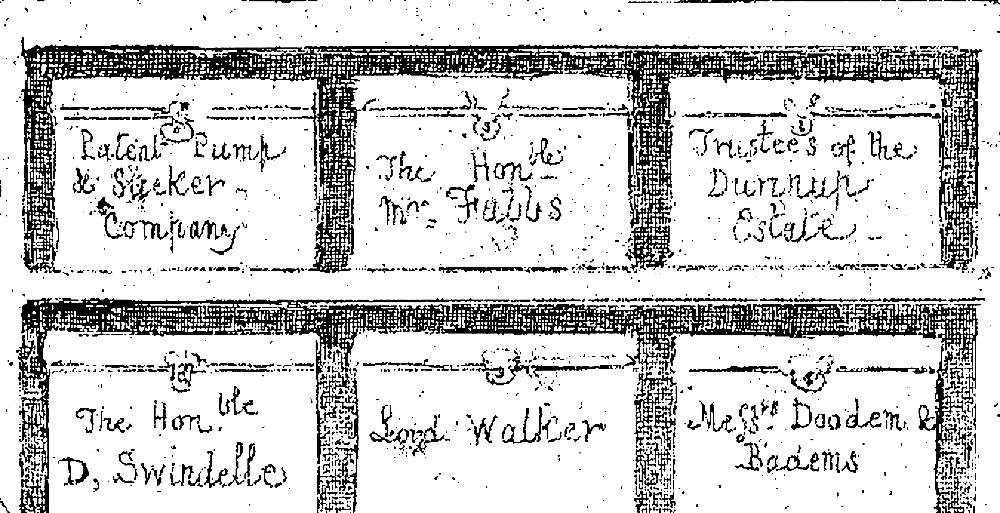 Patent Pump
& Sucker
Company
The Honble
Mrs. Fabbs
Trustees of the
Durrnup
Estate
The Hon.ble
D, Swindelle
Lord Walker
Messrs. Doodem &
Badems